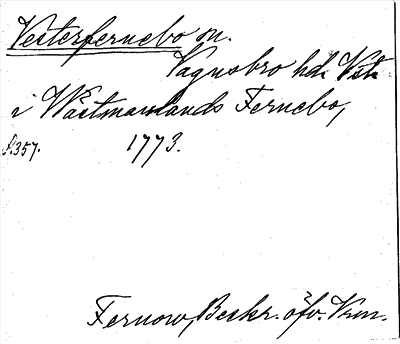 Vesterfernebo sn.
Vagnsbro hd. Vstm.
i Wästmanlands Fernebo,
s. 357. 1773.
Fernow, Beskr. öfv. Vrm.